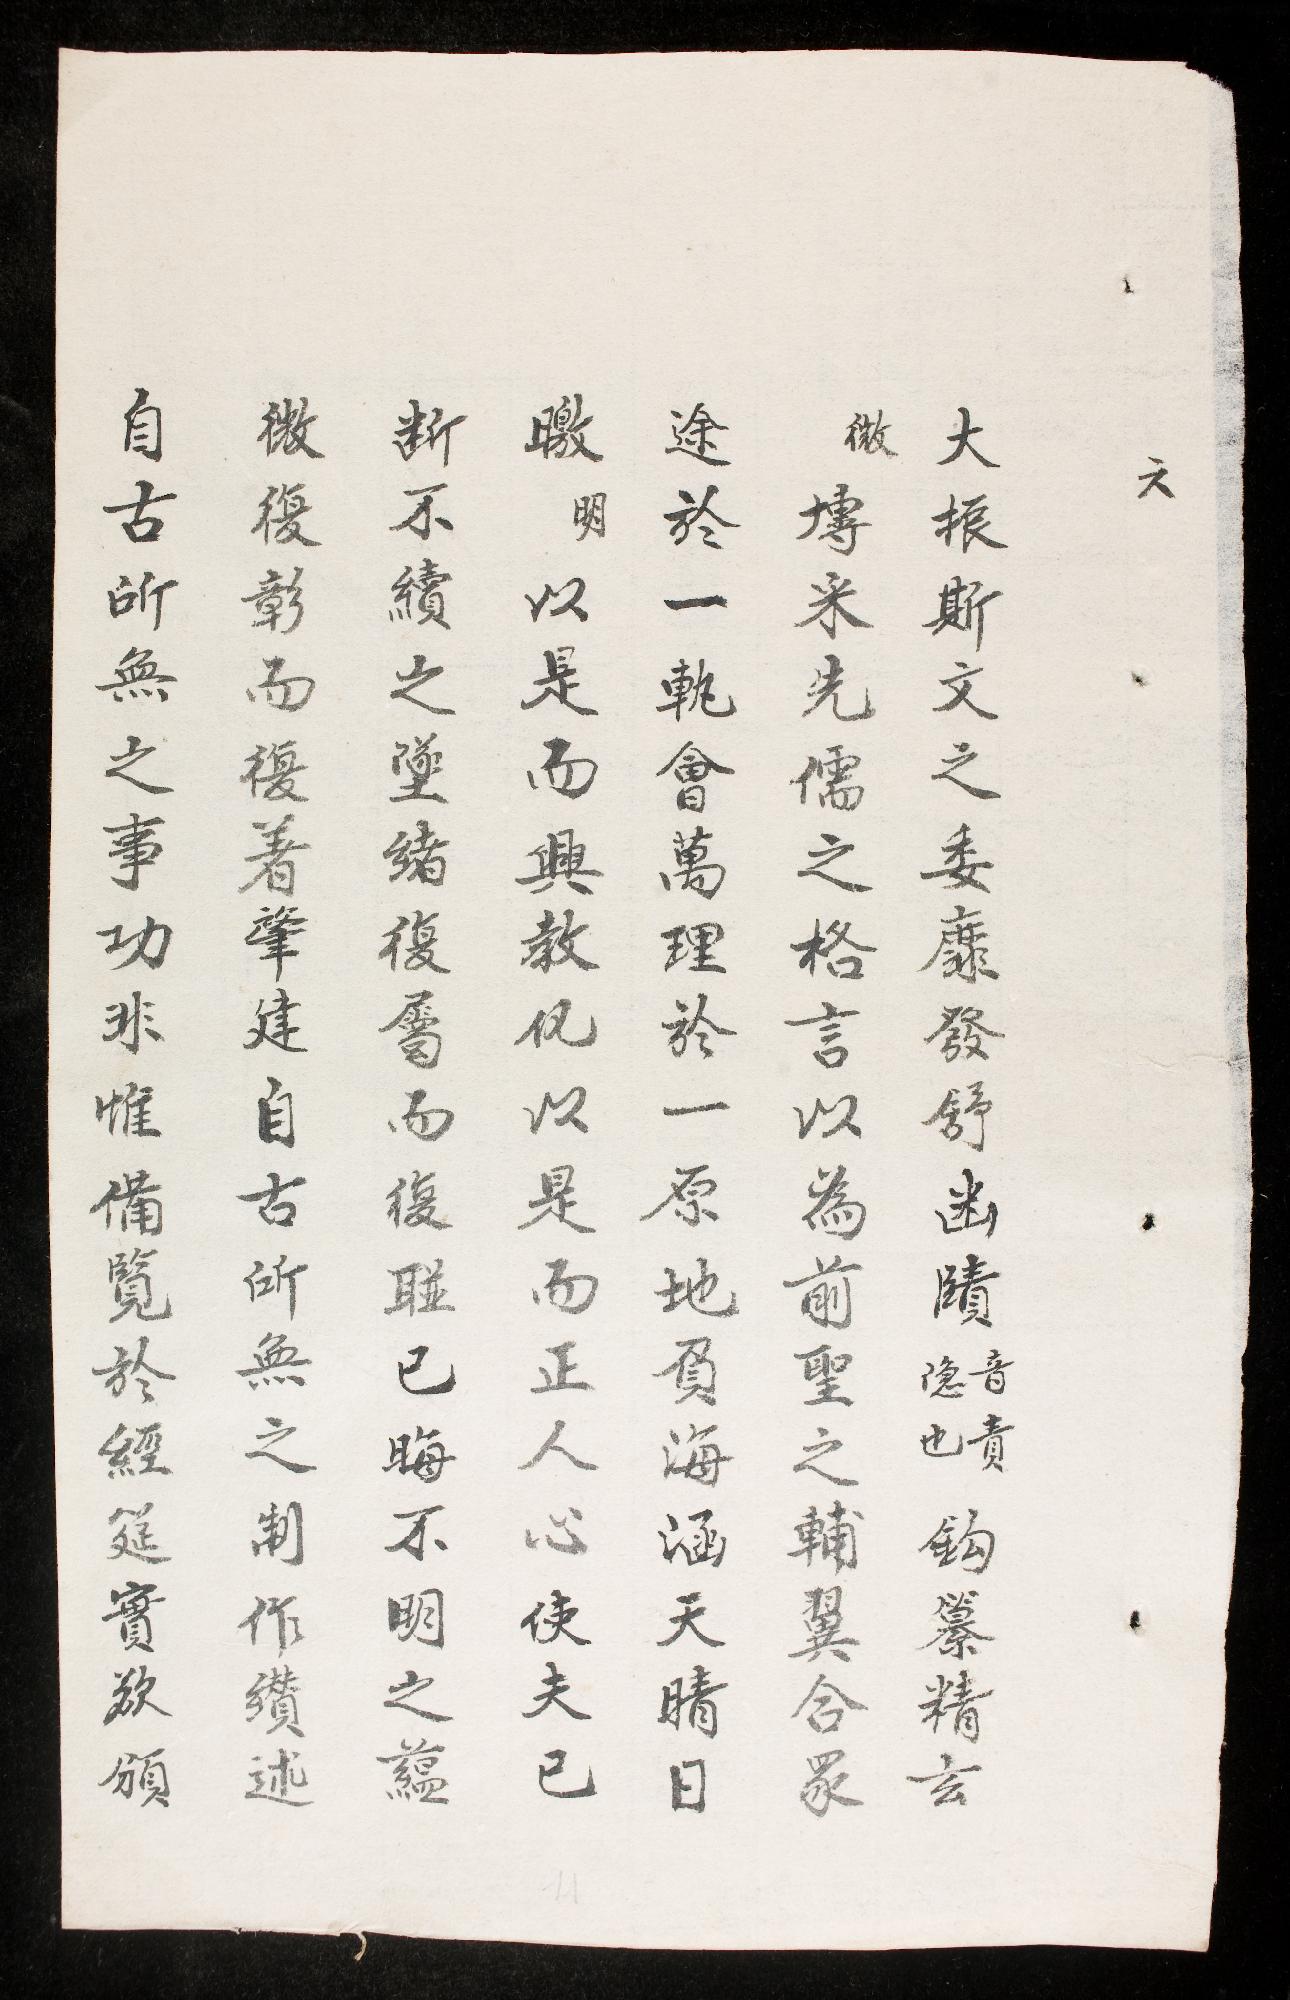 六
大振斯文之委靡發舒幽賾音責隐也鈎纂精玄
微博采先儒之格言以為前聖之輔翼合眾
途於一軌會萬理於一原地負海涵天晴日
曒明以是而興教化以是而正人心使夫已
断不續之墜緒復屬而復聮已晦不明之蘊
微復彰而復著肇建自古所無之制作纘述
自古所無之事功非惟備覽於經筵實欲頒
11